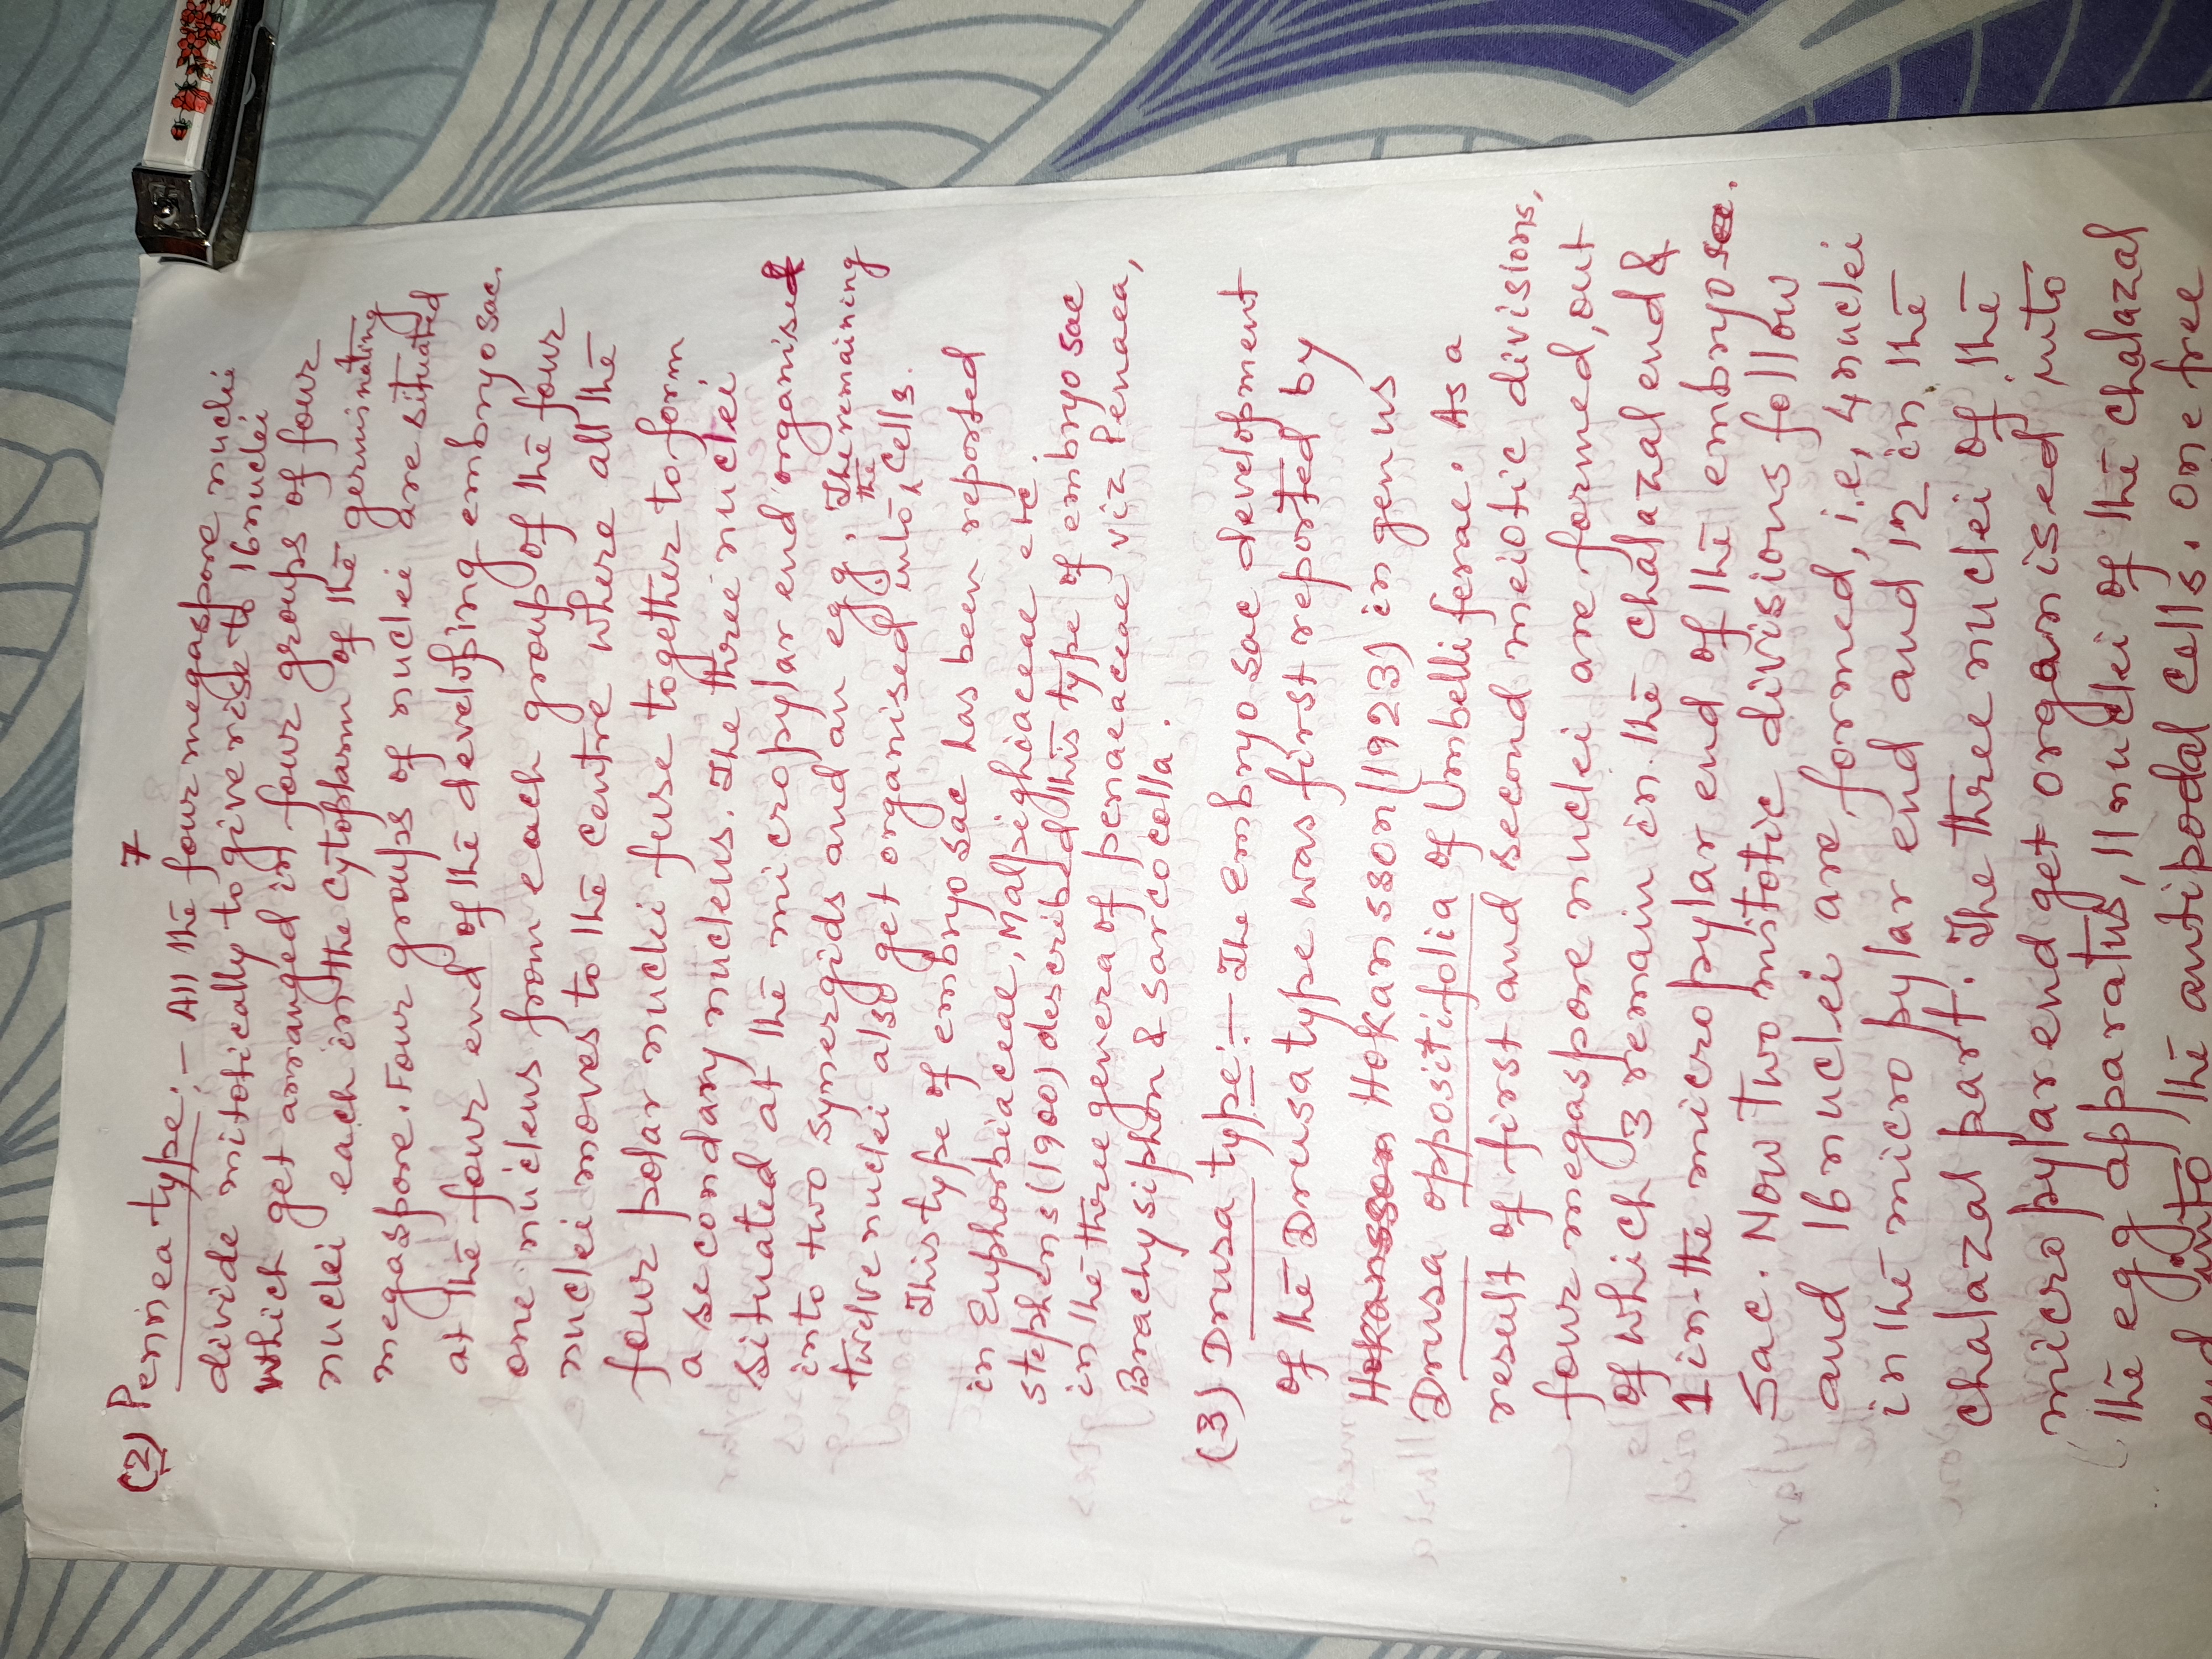 7
(2) Penniea type:- All the four megaspore nuclei
divide mitotically to give rise to 16 nuclei
which get arranged in four groups of four
nuclei each in the cytoplasm of the germinating
megaspore. Four groups of nuclei are situated
at the four end of the developing embryo sac.
one nucleus from each group of the four
nuclei moves to the centre where all the
four polar nuclei fuse together to form
a secondary nucleus. The three nuclei
situated at the micropylar end organised
into two synergids and an egg. The remaining
twelve nuclei also get organised into the cells.
This type of embryo sac has been reported
in Euphorbiaceae, Malpeighiaceae etc.
stephens (1900) described this type of embryo sac
in the three genera of penaeaceae viz Penaea,
Brachysiphon & sarcocolla.
(3) Drusa type:- The embryo sac development
of the Drusa type was first reported by
Hokansson Hokansson (1923) in genus
Drusa oppositifolia of Umbelliferae. As a
result of first and second meiotic divisions,
four megaspore nuclei are formed, out
of which 3 remain in the chalazal end &
1 in the micropylar end of the embryo
Sac. Now Two mitotic divisions follow
and 16 nuclei are formed, i.e, 4 nuclei
in the micropylar end and 12 in the
chalazal part. The three nuclei of the
micropylar end get organised into
the egg apparatus, 11 nuclei of the chalazal
end into the antipodal cells. one free